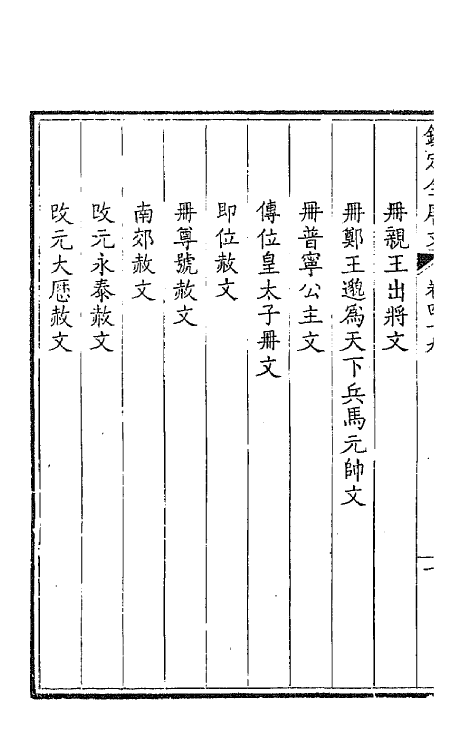 欽定全唐文 卷四十九 一
冊親王出將文
冊鄭王邈爲天下兵馬元帥文
冊普寧公主文
傳位皇太子冊文
即位赦文
冊尊號赦文
南郊赦文
改元永泰赦文
改元大厯赦文